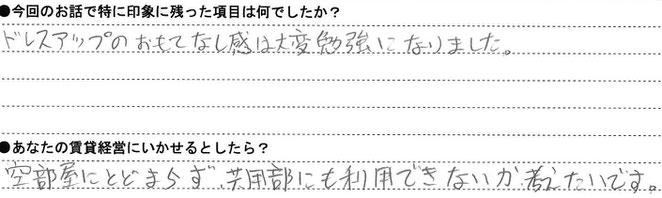 ●今回のお話で特に印象に残った項目は何でしたか?
ドレスアップのおもてなし感は大変勉強になりました。
●あなたの賃貸経営にいかせるとしたら?
空部屋にとどまらず、共用部にも利用できないか考えたいです。